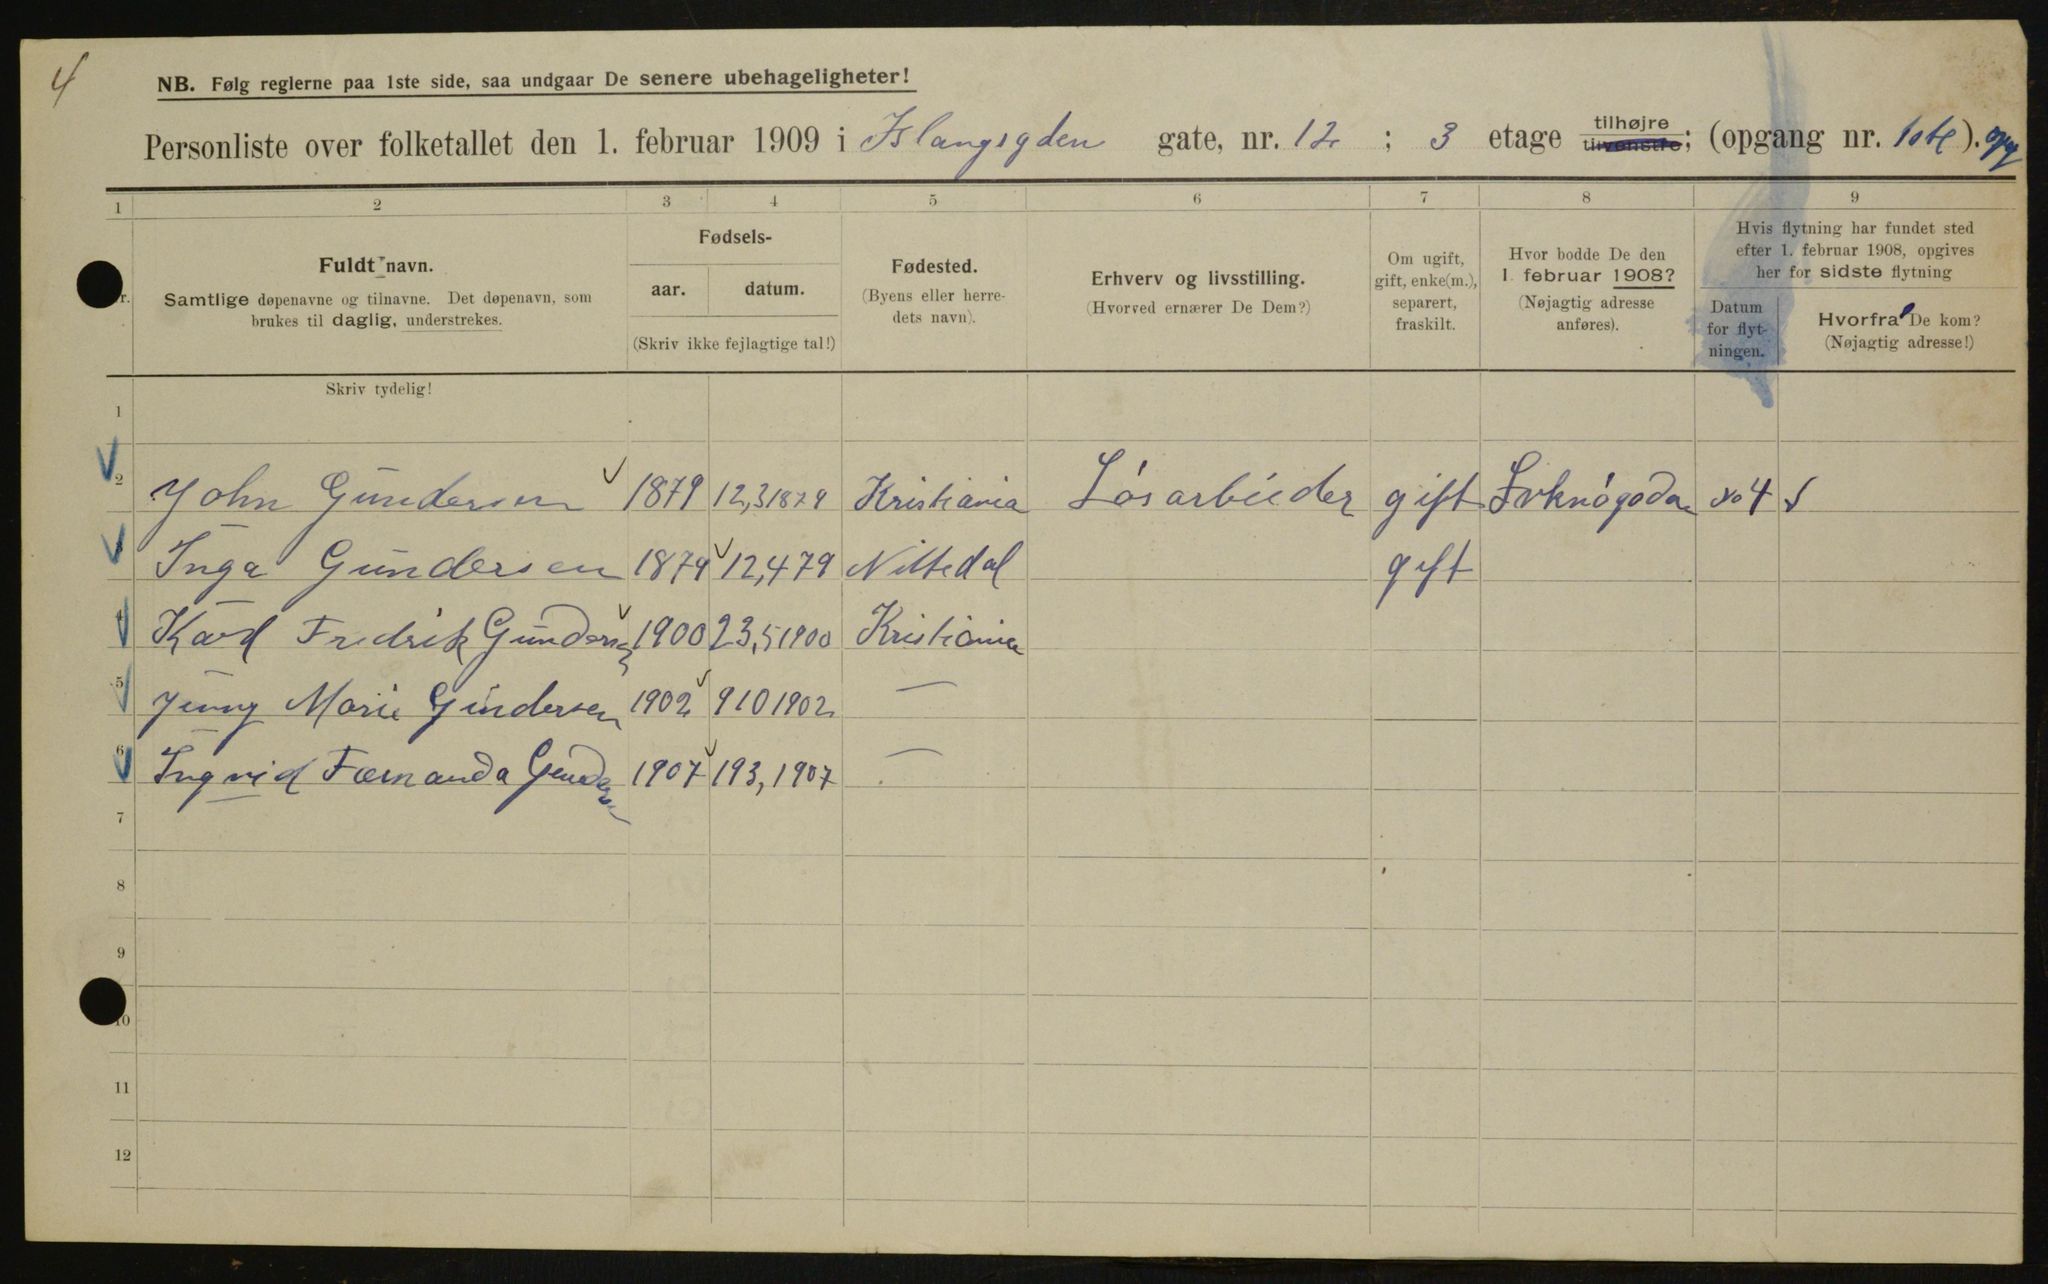 4
NB. Følg reglerne paa 1ste side, saa undgaar De senere ubehageligheter!
Personliste over folketallet den 1. februar 1909 i Islangsgden gate, nr. 12 ; 3 etage tilhøjre tilvenstre; (opgang nr. 1ste). opg
1 2 3 4 5 6 7 8 9
Nr.
Fuldt navn.
Samtlige døpenavne og tilnavne. Det døpenavn, som
brukes til daglig, understrekes.
Fødsels-
aar. datum.
(Skriv ikke fejlagtige tal!)
Fødested.
(Byens eller herre-
dets navn).
Erhverv og livsstilling.
(Hvorved ernærer De Dem?)
Om ugift,
gift, enke(m.),
separert,
fraskilt.
Hvor bodde De den
1. februar 1908?
(Nøjagtig adresse
anføres).
Hvis flytning har fundet sted
efter 1. februar 1908, opgives
her for sidste flytning
Datum
for flyt-
ningen.
Hvorfra De kom?
(Nøjagtig adresse!)
Skriv tydelig!
1
2 John Gundersen 1879 12,3 1879 Kristiania Løsarbeider gift No 4
3 Inga Gundersen 1879 12,4 79 Nittedal gift
4 Karl Fredrik Gundersen 1900 23,5 1900 Kristiania
5 Jenny Marie Gundersen 1902 9 10 1902 —
6 Ingrid Fernanda Gundersen 1907 193, 1907 —
7
8
9
10
11
12